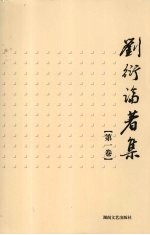 劉衍論著集
【第一卷】
湖南文艺出版社